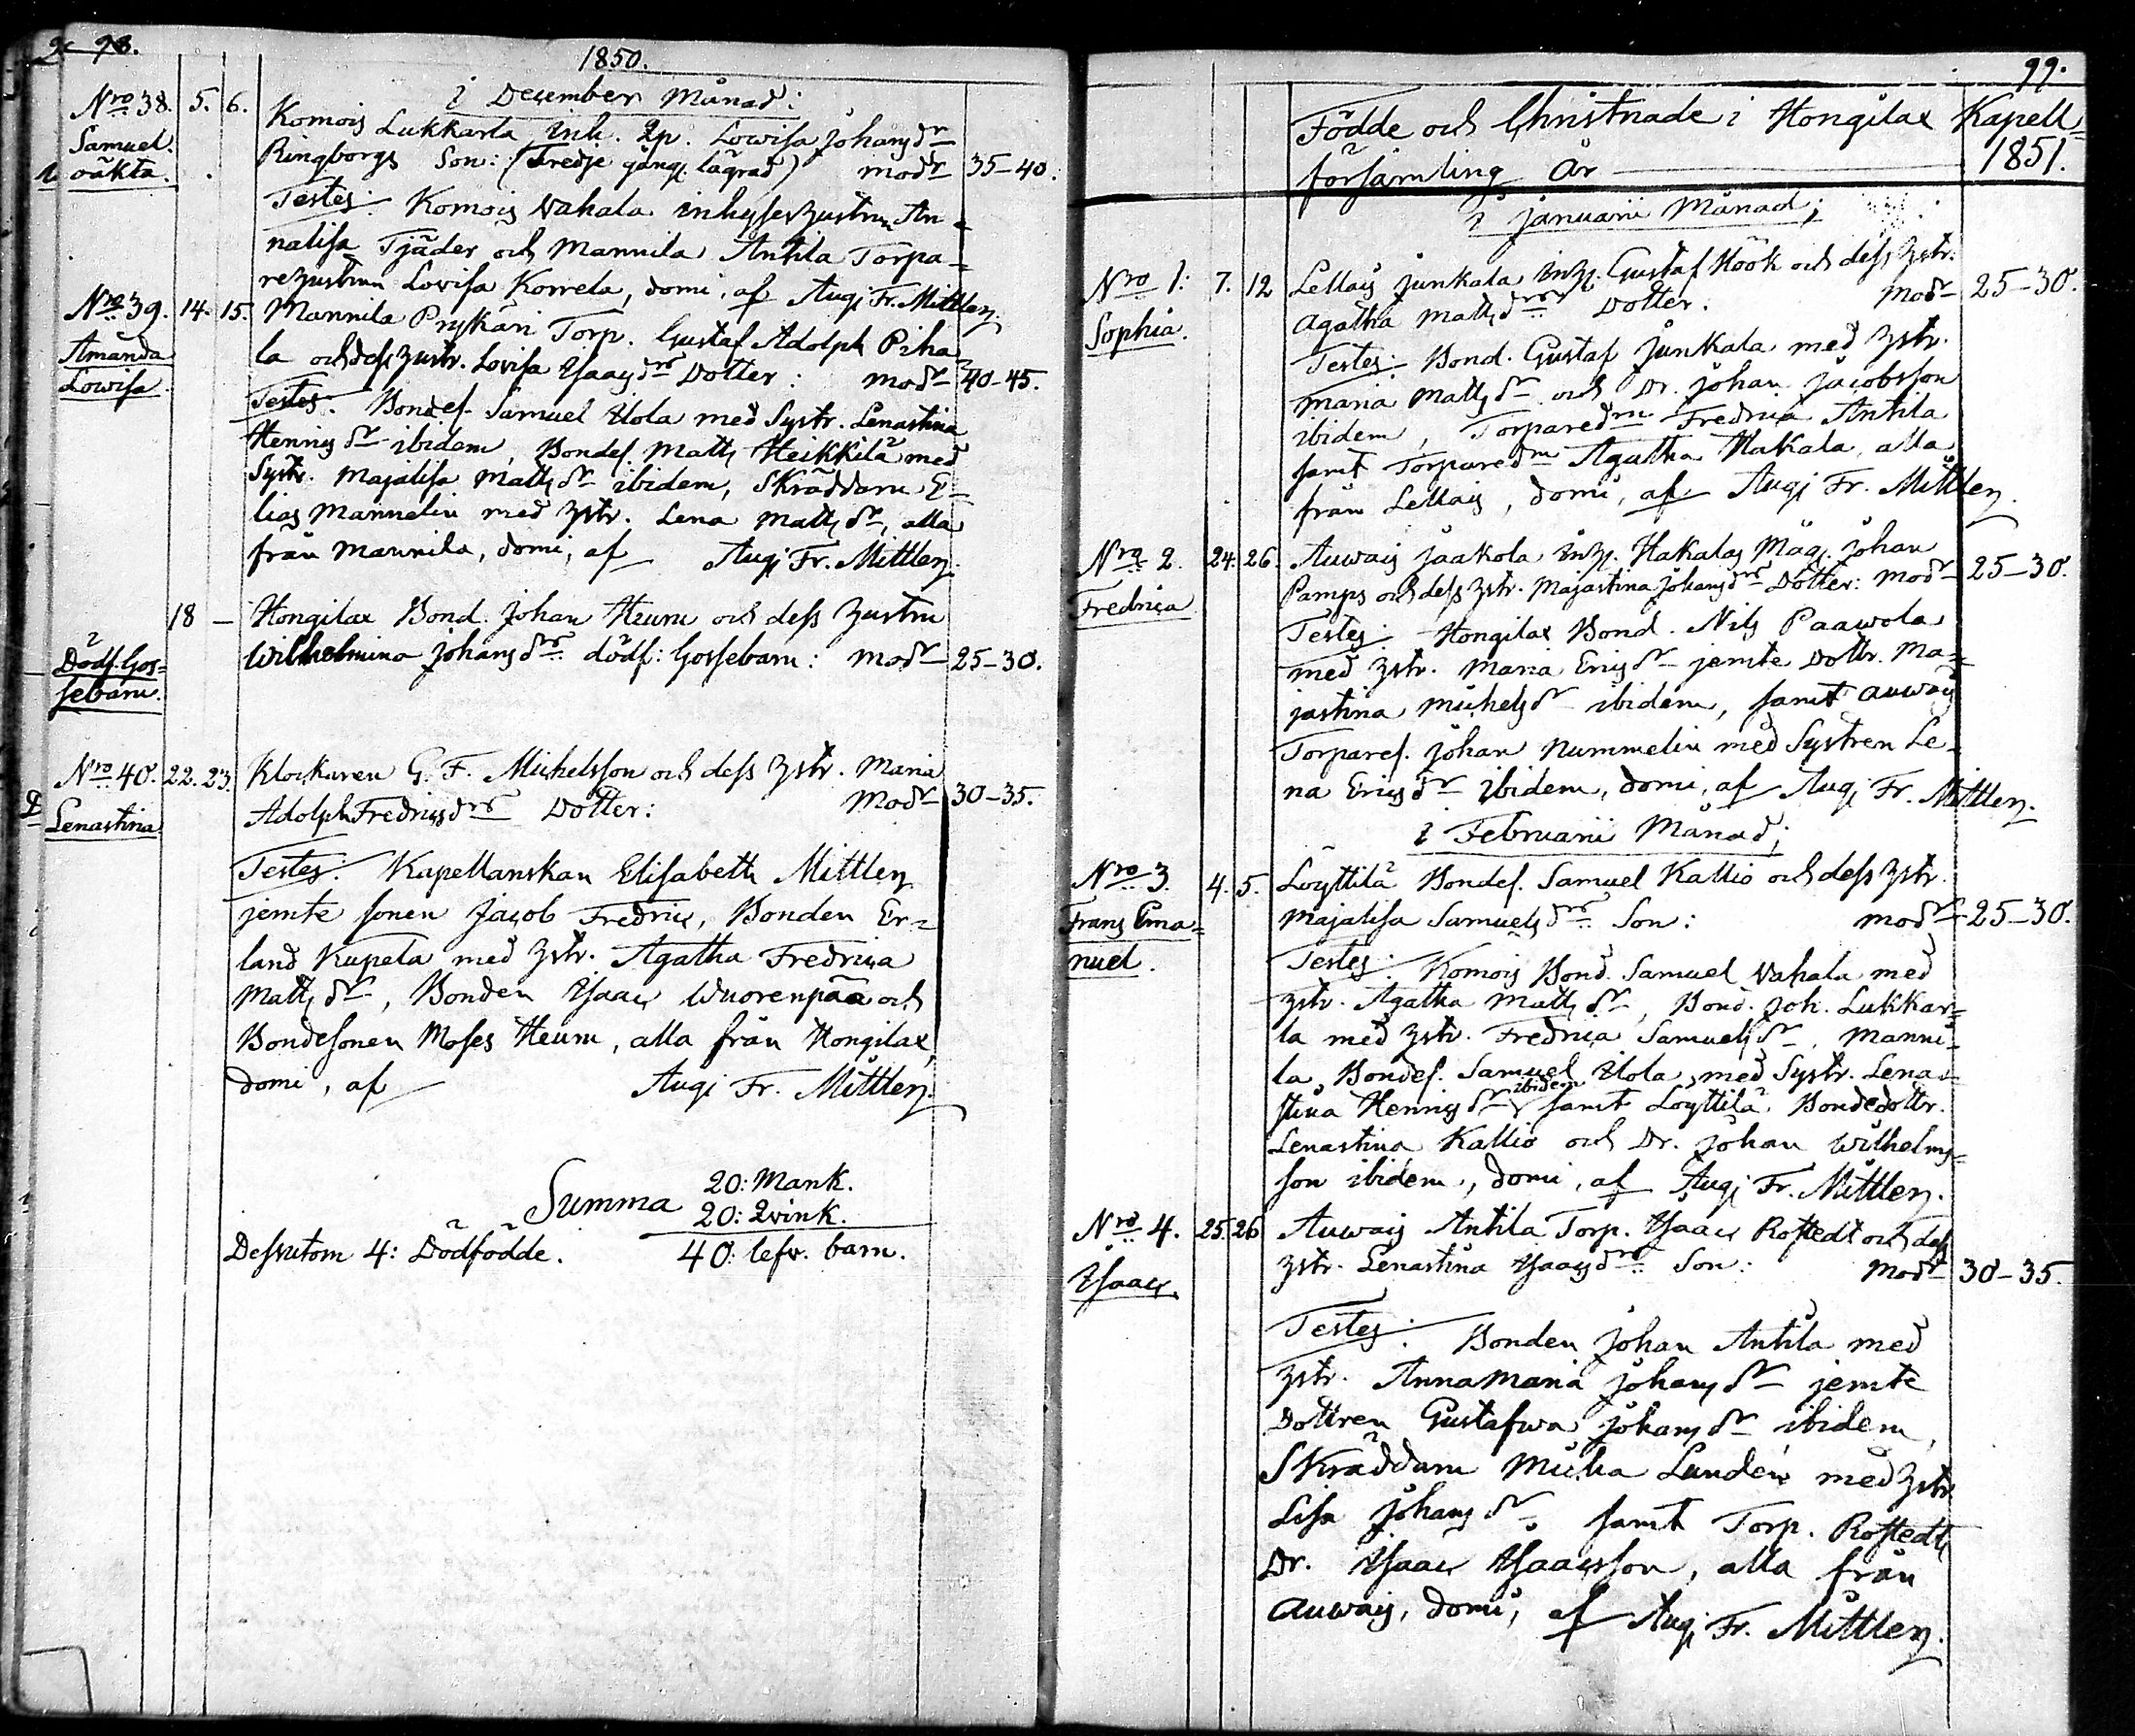 98.
1850.
i December Månad:
Nro 38. 5. 6. Komois Lukkarla Inh. Qp. Lowisa Johansdr
Samuel. Ringborgs Son: (Tredje gång. lägrad) modr 35–40.
oäkta.
Testes: Komois Vahala inhyseshustrun An-
nalisa Tjäder och Mannila Antila Torpa-
rehustrun Lovisa Korrela, domi, af Augi Fr. Mittler.
Nro 39. 14. 15. Mannila Prykäri Torp. Gustaf Adolph Piha-
Amanda la och dess hustr. Lovisa Isaacsdrs Dotter: modr 40–45.
Lowisa.
Testes: Bondes. Samuel Uola med Systr. Lenastina
Henricsdr ibidem, Bondes. Matts Heikkilä med
Systr. Majalisa Mattsdr ibidem, Skräddaren E-
lias Mannelin med hstr. Lena Mattsdr, alla
från Mannila, domi, af Augi Fr. Mittler.
18 – Hongilax Bond. Johan Heurn och dess hustru
Dödf. Gos= Wilhelmina Johansdrs dödf: Gossebarn: modr 25–30.
sebarn.
Nro 40. 22. 23. Klockaren G. F. Michelsson och dess hstr. Maria
Lenastina Adolph Fredricsdrs Dotter: Modr 30–35.
Testes: Kapellanskan Elisabeth Mittler
jemte sonen Jacob Fredric, Bonden Er=
land Kupela med hstr. Agatha Fredrica
Mattsdr, Bonden Isaac Wuorenpää och
Bondesonen Moses Heurn, alla från Hongilax,
domi, af Augi Fr. Mittler.
20: Mank.
Summa 20: Qvink.
Dessutom 4: Dödfödde. 40: lefv. barn.
99.
Födde och Christnade i Hongilax Kapell=
församling År 1851.
i Januarii Månad;
Nro 1. 7. 12 Lellais Junkala inh. Gustaf Höök och dess hstr.
Sophia. Agatha Mattsdrs Dotter. Modr 25–30.
Testes: Bond. Gustaf Junkala med hstr.
Maria Mattsdr och Dr. Johan Jacobsson
ibidem, Torparedrn Fredrica Antila
samt Torparedrn Agatha Hakala, alla
från Lellais, domi, af Augi Fr. Mittler.
Nro 2. 24. 26. Auwais Jaakola inh. Hakalas Måg. Johan
Fredrica Pamps och dess hstr. Majastina Johansdrs Dotter: Modr 25–30.
Testes: Hongilax Bond. Nils Paawola
med hstr. Maria Ericsdr jemte Dottr. Ma=
jastina Michelsdr ibidem, samt Auwais
Torpares. Johan Nummelin med Systren Le-
na Ericsdr ibidem, domi, af Augi Fr. Mittler.
i Februarii Månad;
Nro 3. 4. 5. Löyttilä Bondes. Samuel Kallio och dess hstr.
Frans Ema= Majalisa Samuelsdrs Son: modr 25–30.
nuel.
Testes: Komois Bond. Samuel Vahala med
hstr. Agatha Mattsdr, Bond. Joh. Lukkar=
la med hstr. Fredrica Samuelsdr, Manni-
la, Bondes. Samuel Uola med Systr. Lena-
stina Henricsdr ibidem samt Löyttilä Bondedottr.
Lenastina Kallio och Dr. Johan Wilhelms=
son ibidem, domi, af Augi Fr. Mittler.
Nro 4. 25. 26 Auwais Antila Torp. Isaac Rostedt och dess
Isaac. hstr. Lenastina Isaacsdrs Son: Modr 30–35.
Testes: Bonden Johan Antila med
hstr. Annamaria Johansdr jemte
Dottren Gustafwa Johansdr ibidem,
Skräddaren Micha Lunden med hstr.
Lisa Johansdr samt Torp. Rostedts
Dr. Isaac Isaacsson, alla från
Auwais, domi, af Augi Fr. Mittler.